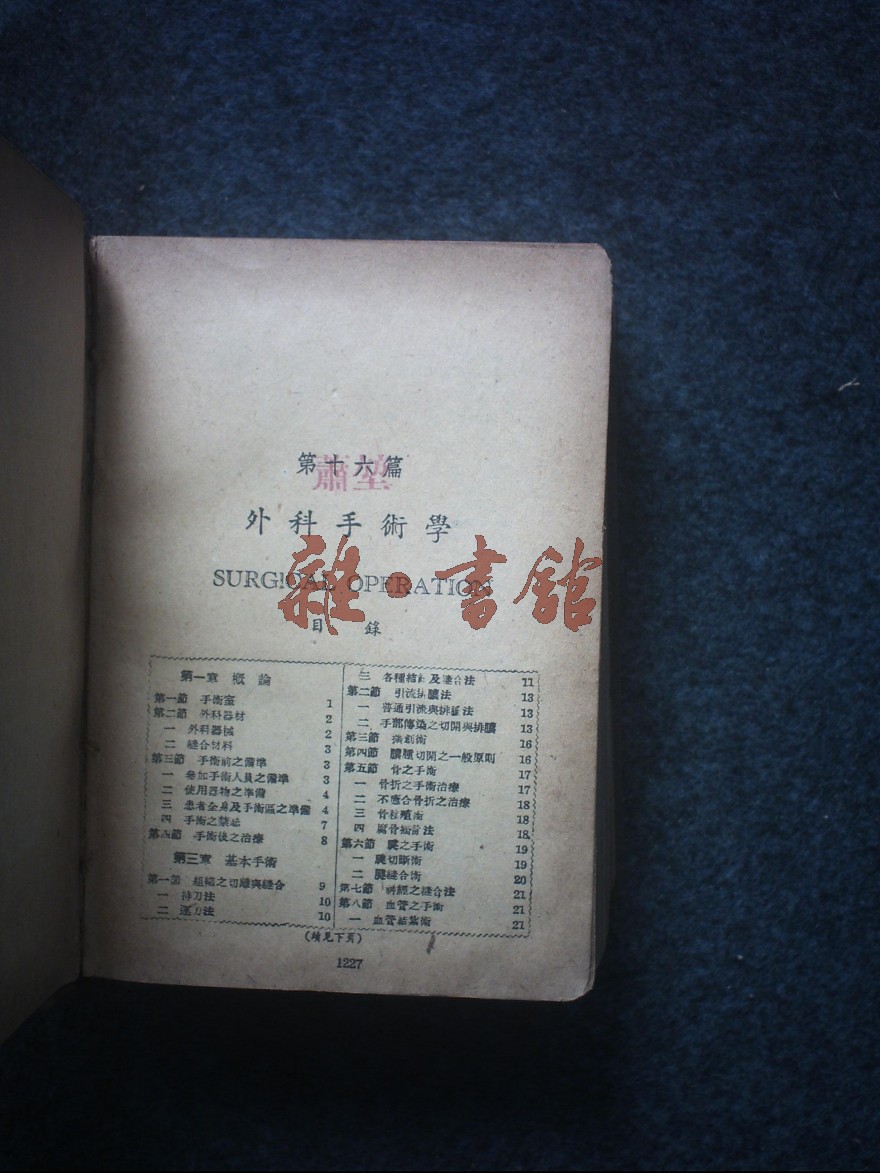 第十六篇
蕭堃
外科手術學
SURGICAL OPERATION
雜·書舘
目 錄
第一章 概論
第一節 手術室 1
第二節 外科器材 2
一 外科器械 2
二 縫合材料 3
第三節 手術前之備準 3
一 參加手術人員之備準 3
二 使用器物之準備 4
三 患者全身及手術區之準備 4
四 手術之禁忌 7
第四節 手術後之治療 8
第三章 基本手術
第一節 組織之切離與縫合 9
一 持刀法 10
二 運刀法 10
三 各種結紮及縫合法 11
第二節 引流排膿法 13
一 普通引流與排膿法 13
二 手部傳染之切開與排膿 13
第三節 擴創術 16
第四節 膿腫切開之一般原則 16
第五節 骨之手術 17
一 骨折之手術治療 17
二 不癒合骨折之治療 18
三 骨移植術 18
四 腐骨摘除法 18
第六節 腱之手術 19
一 腱切斷術 19
二 腱縫合術 20
第七節 神經之縫合法 21
第八節 血管之手術 21
一 血管結紮術 21
(續見下頁)
1227